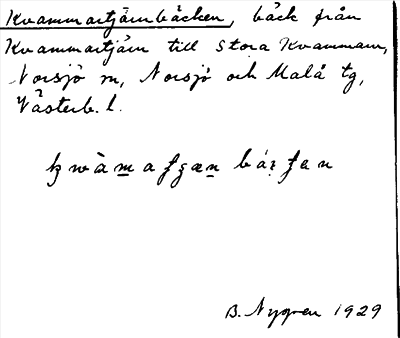 Kvammartjärnbäcken, bäck från
Kvammartjärn till Stora Kvammarn,
Norsjö sn, Norsjö och Malå tg,
Västerb. l.
B. Nygren 1929